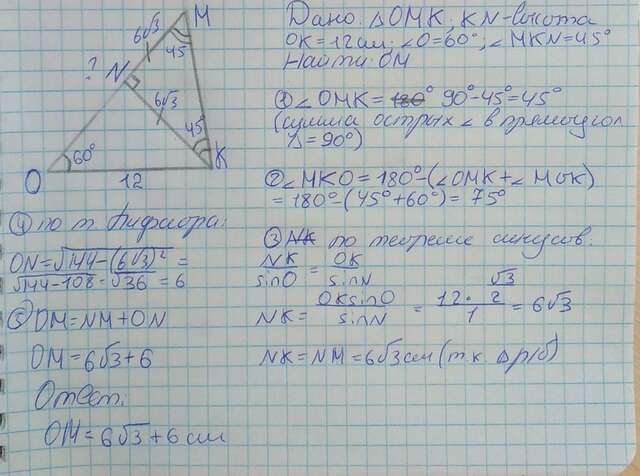 M
6√3
45
?
N
6√3
45°
60°
O
12
K
Дано: △OMK; KN-высота
OK=12см; ∠O=60°; ∠MKN=45°
Найти: OM
① ∠OMK= 180° 90°-45°=45°
(сумма острых ∠ в прямоугол
△=90°)
② ∠MKO=180°-(∠OMK+∠MOK)
=180°-(45°+60°)=75°
③ NK по теореме синусов:
NK/sinO = OK/sinN
NK= OKsinO/sinN = 12·√3/2/1 = 6√3
NK=NM=6√3см (т.к. △р/б)
④ по т. Пифагора:
ON=√144-(6√3)² =
√144-108=√36=6
⑤ OM=NM+ON
OM=6√3+6
Ответ:
OM=6√3+6см